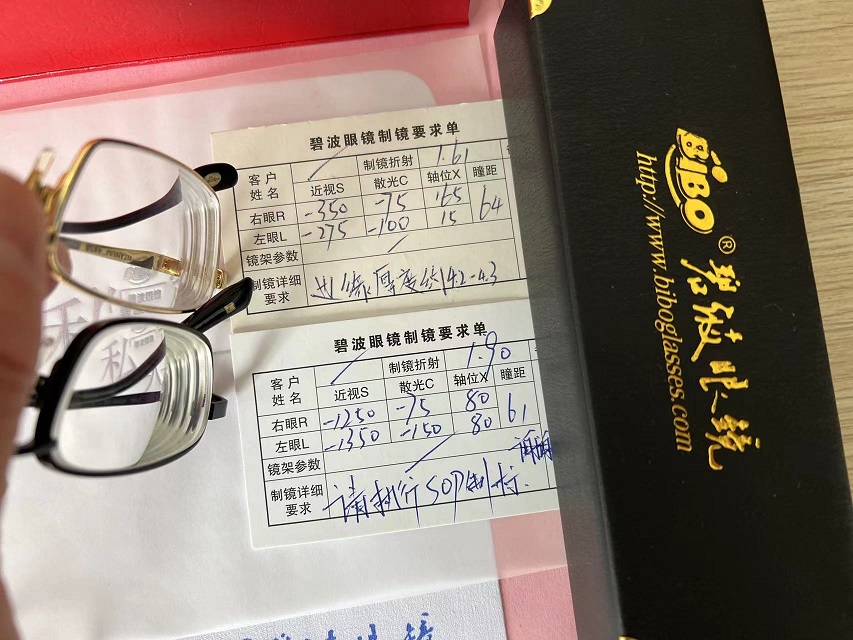 碧波眼镜制镜要求单
客户姓名 制镜折射 1.61 瞳距
近视S 散光C 轴位X
右眼R -350 -75 165 64
左眼L -275 -100 15
镜架参数
制镜详细要求 边缘厚度给14.2-4.3
碧波眼镜制镜要求单
客户姓名 制镜折射 1.90 瞳距
近视S 散光C 轴位X
右眼R -1250 -75 80 61
左眼L -1350 -150 80
镜架参数
制镜详细要求 请执行SOP制标.
BIBO®碧波眼镜
http://www.biboglasses.com